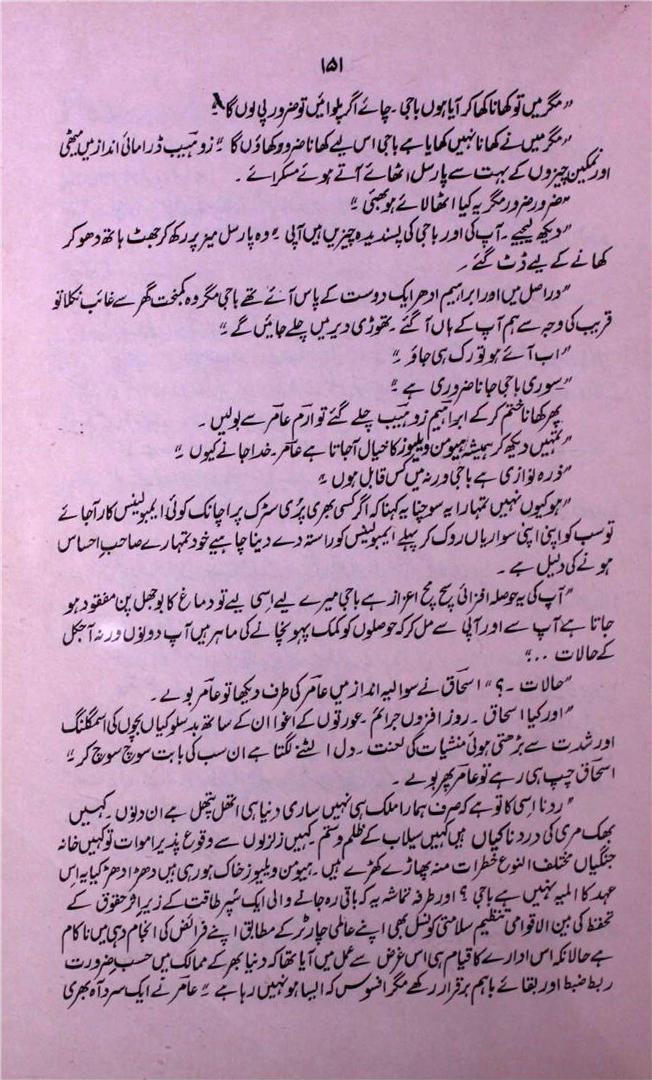 ۱۵۱
”مگر میں تو کھانا کھا کر آیا ہوں باجی۔ چائے اگر پلوائیں تو ضرور پی لوں گا“
”مگر میں نے کھانا نہیں کھایا ہے باجی اس لیے کھانا ضرور کھاؤں گا۔“ زوہیب ڈرامائی انداز میں میٹھی
اور نمکین چیزوں کے بہت سے پارسل اٹھائے آتے ہوئے مسکرائے۔
”ضرور ضرور مگر یہ کیا اٹھا لائے ہو بھئی۔“
”دیکھ لیجیے۔ آپ کی اور باجی کی پسندیدہ چیزیں ہیں آپی۔“ وہ پارسل میز پر رکھ کر جھٹ ہاتھ دھو کر
کھانے کے لیے ڈٹ گئے۔
”دراصل میں اور ابراہیم ادھر ایک دوست کے پاس آئے تھے باجی مگر وہ کمبخت گھر سے غائب نکلا تو
قریب کی وجہ سے ہم آپ کے ہاں آ گئے۔ تھوڑی دیر میں چلے جائیں گے۔“
”اب آئے ہو تو رک ہی جاؤ۔“
”سوری باجی جانا ضروری ہے۔“
پھر کھانا ختم کر کے ابراہیم زوہیب چلے گئے تو ارم عامر سے بولیں۔
”تمہیں دیکھ کر ہمیشہ ہیومن ویلیوز کا خیال آجاتا ہے عامر۔ خدا جانے کیوں۔“
”ذرہ نوازی ہے باجی ورنہ میں کس قابل ہوں۔“
”ہو کیوں نہیں تمہارا یہ سوچنا یہ کہنا کہ اگر کسی بھری پُری سڑک پر اچانک کوئی ایمبولینس کار آجائے
تو سب کو اپنی اپنی سواریاں روک کر پہلے ایمبولینس کو راستہ دے دینا چاہیے خود تمہارے صاحبِ احساس
ہونے کی دلیل ہے۔
”آپ کی یہ حوصلہ افزائی سچ مچ اعزاز ہے باجی میرے لیے اسی لیے تو دماغ کا بوجھل پن مفقود ہو
جاتا ہے آپ سے اور آپی سے مل کر کہ حوصلوں کو کمک پہونچانے کی ماہر ہیں آپ دونوں ورنہ آجکل
کے حالات ..“
”حالات۔؟“ اسحاق نے سوالیہ انداز میں عامر کی طرف دیکھا تو عامر بولے۔
”اور کیا اسحاق۔ روز افزوں جرائم۔ عورتوں کے اغوا ان کے ساتھ بدسلوکیاں بچوں کی اسمگلنگ
اور شدت سے بڑھتی ہوئی منشیات کی لعنت۔ دل الٹنے لگتا ہے ان سب کی بابت سوچ سوچ کر۔“
اسحاق چپ ہی رہے تو عامر پھر بولے۔
”رونا اسی کا تو ہے کہ صرف ہمارا ملک ہی نہیں ساری دنیا ہی اتھل پتھل ہے ان دنوں۔ کہیں
بھک مری کی دردناکیاں ہیں کہیں سیلاب کے ظلم و ستم۔ کہیں زلزلوں سے وقوع پذیر اموات تو کہیں خانہ
جنگیاں مختلف النوع خطرات منہ پھاڑے کھڑے ہیں۔ ہیومن ویلیوز خاک ہو رہی ہیں دھڑا دھڑ کیا یہ اِس
عہد کا المیہ نہیں ہے باجی؟ اور طرفہ تماشہ یہ کہ باقی رہ جانے والی ایک سُپر طاقت کے زیرِ اثر حقوق کے
تحفظ کی بین الاقوامی تنظیم سلامتی کونسل بھی اپنے عالمی چارٹر کے مطابق اپنے فرائض کی انجام دہی میں ناکام
ہے حالانکہ اس ادارے کا قیام ہی اس غرض سے عمل میں آیا تھا کہ دنیا بھر کے ممالک میں حسبِ ضرورت
ربط ضبط اور بقائے باہم برقرار رکھے مگر افسوس کہ ایسا ہو نہیں رہا ہے۔“ عامر نے ایک سرد آہ بھری